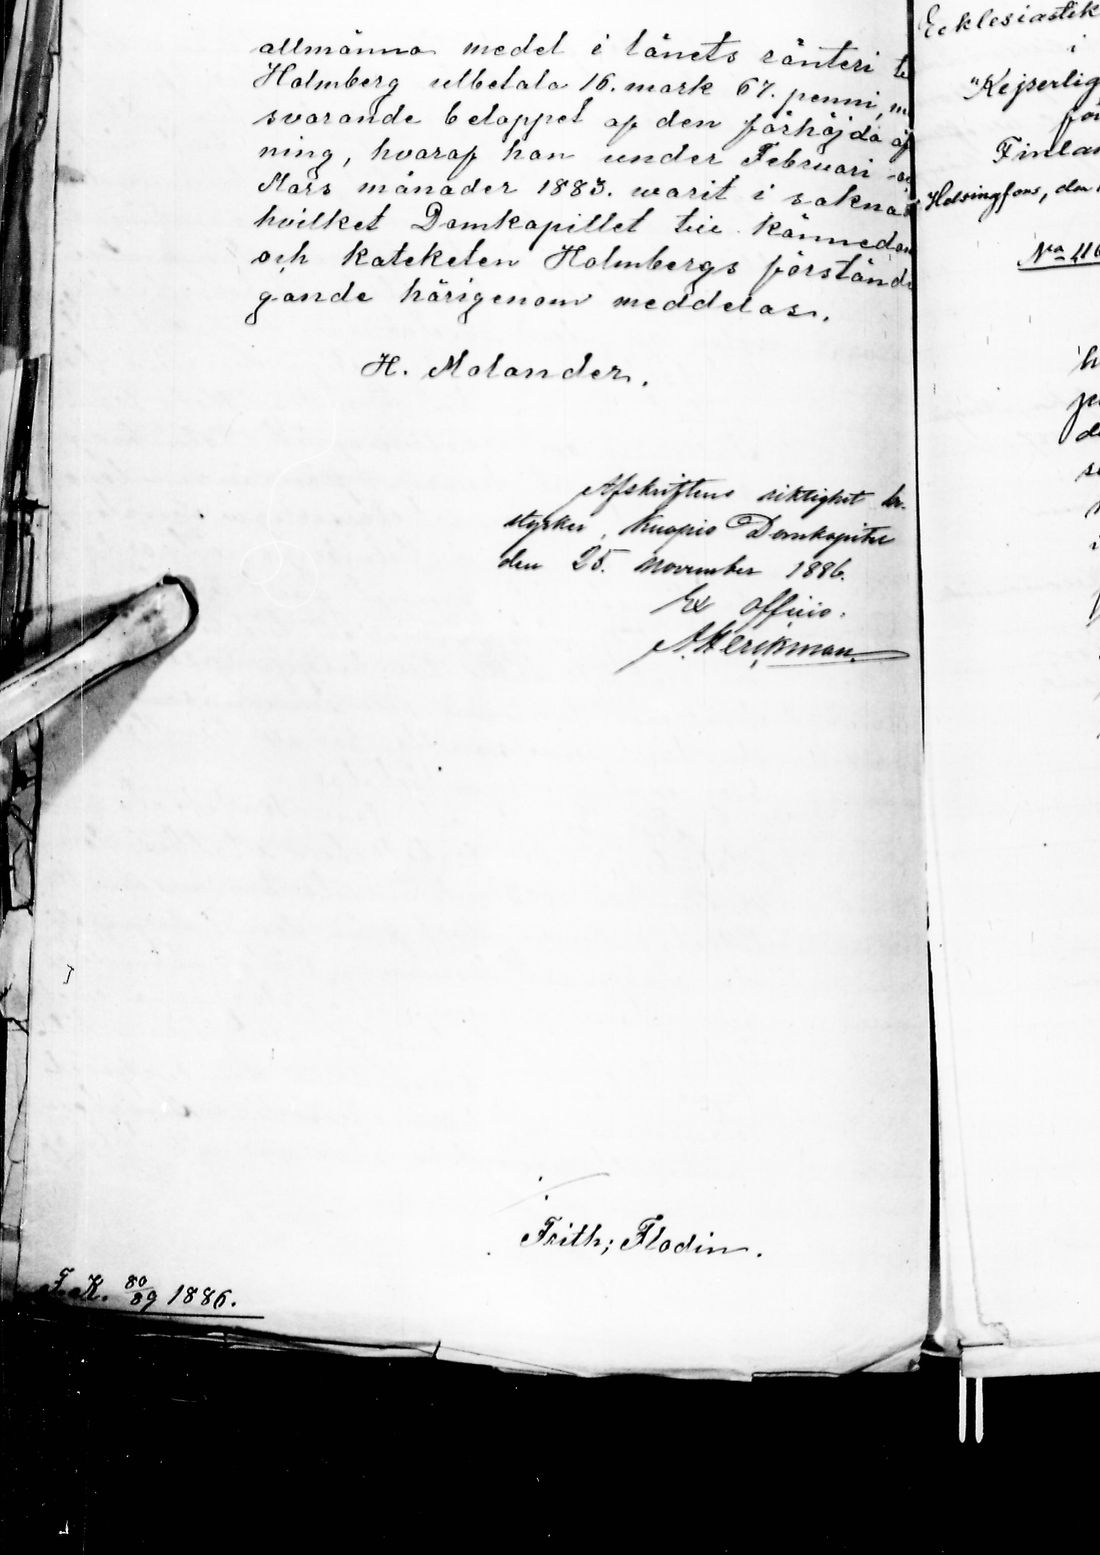 allmänna medel i länets ränteri
Holmberg utbetala 16. mark 67. penni, m
svarande beloppet af den förhöjda af
ning, hvaraf han under Februari
Mars månader 1883. warit i sakna
hvilket Domkapitlet till kännedom
och kateketen Holmbergs förständi
gande härigenom meddelas.
H. Molander.
Afskriftens riktighet be-
styrker, Kuopio Domkapitel
den 25. november 1886.
Ex officio.
Frith; Flodin.
F. K. 80/89 1886.
Ecklesiastik
i
"Kejserlig
för
Finlan
Helsingfors, den
No 416